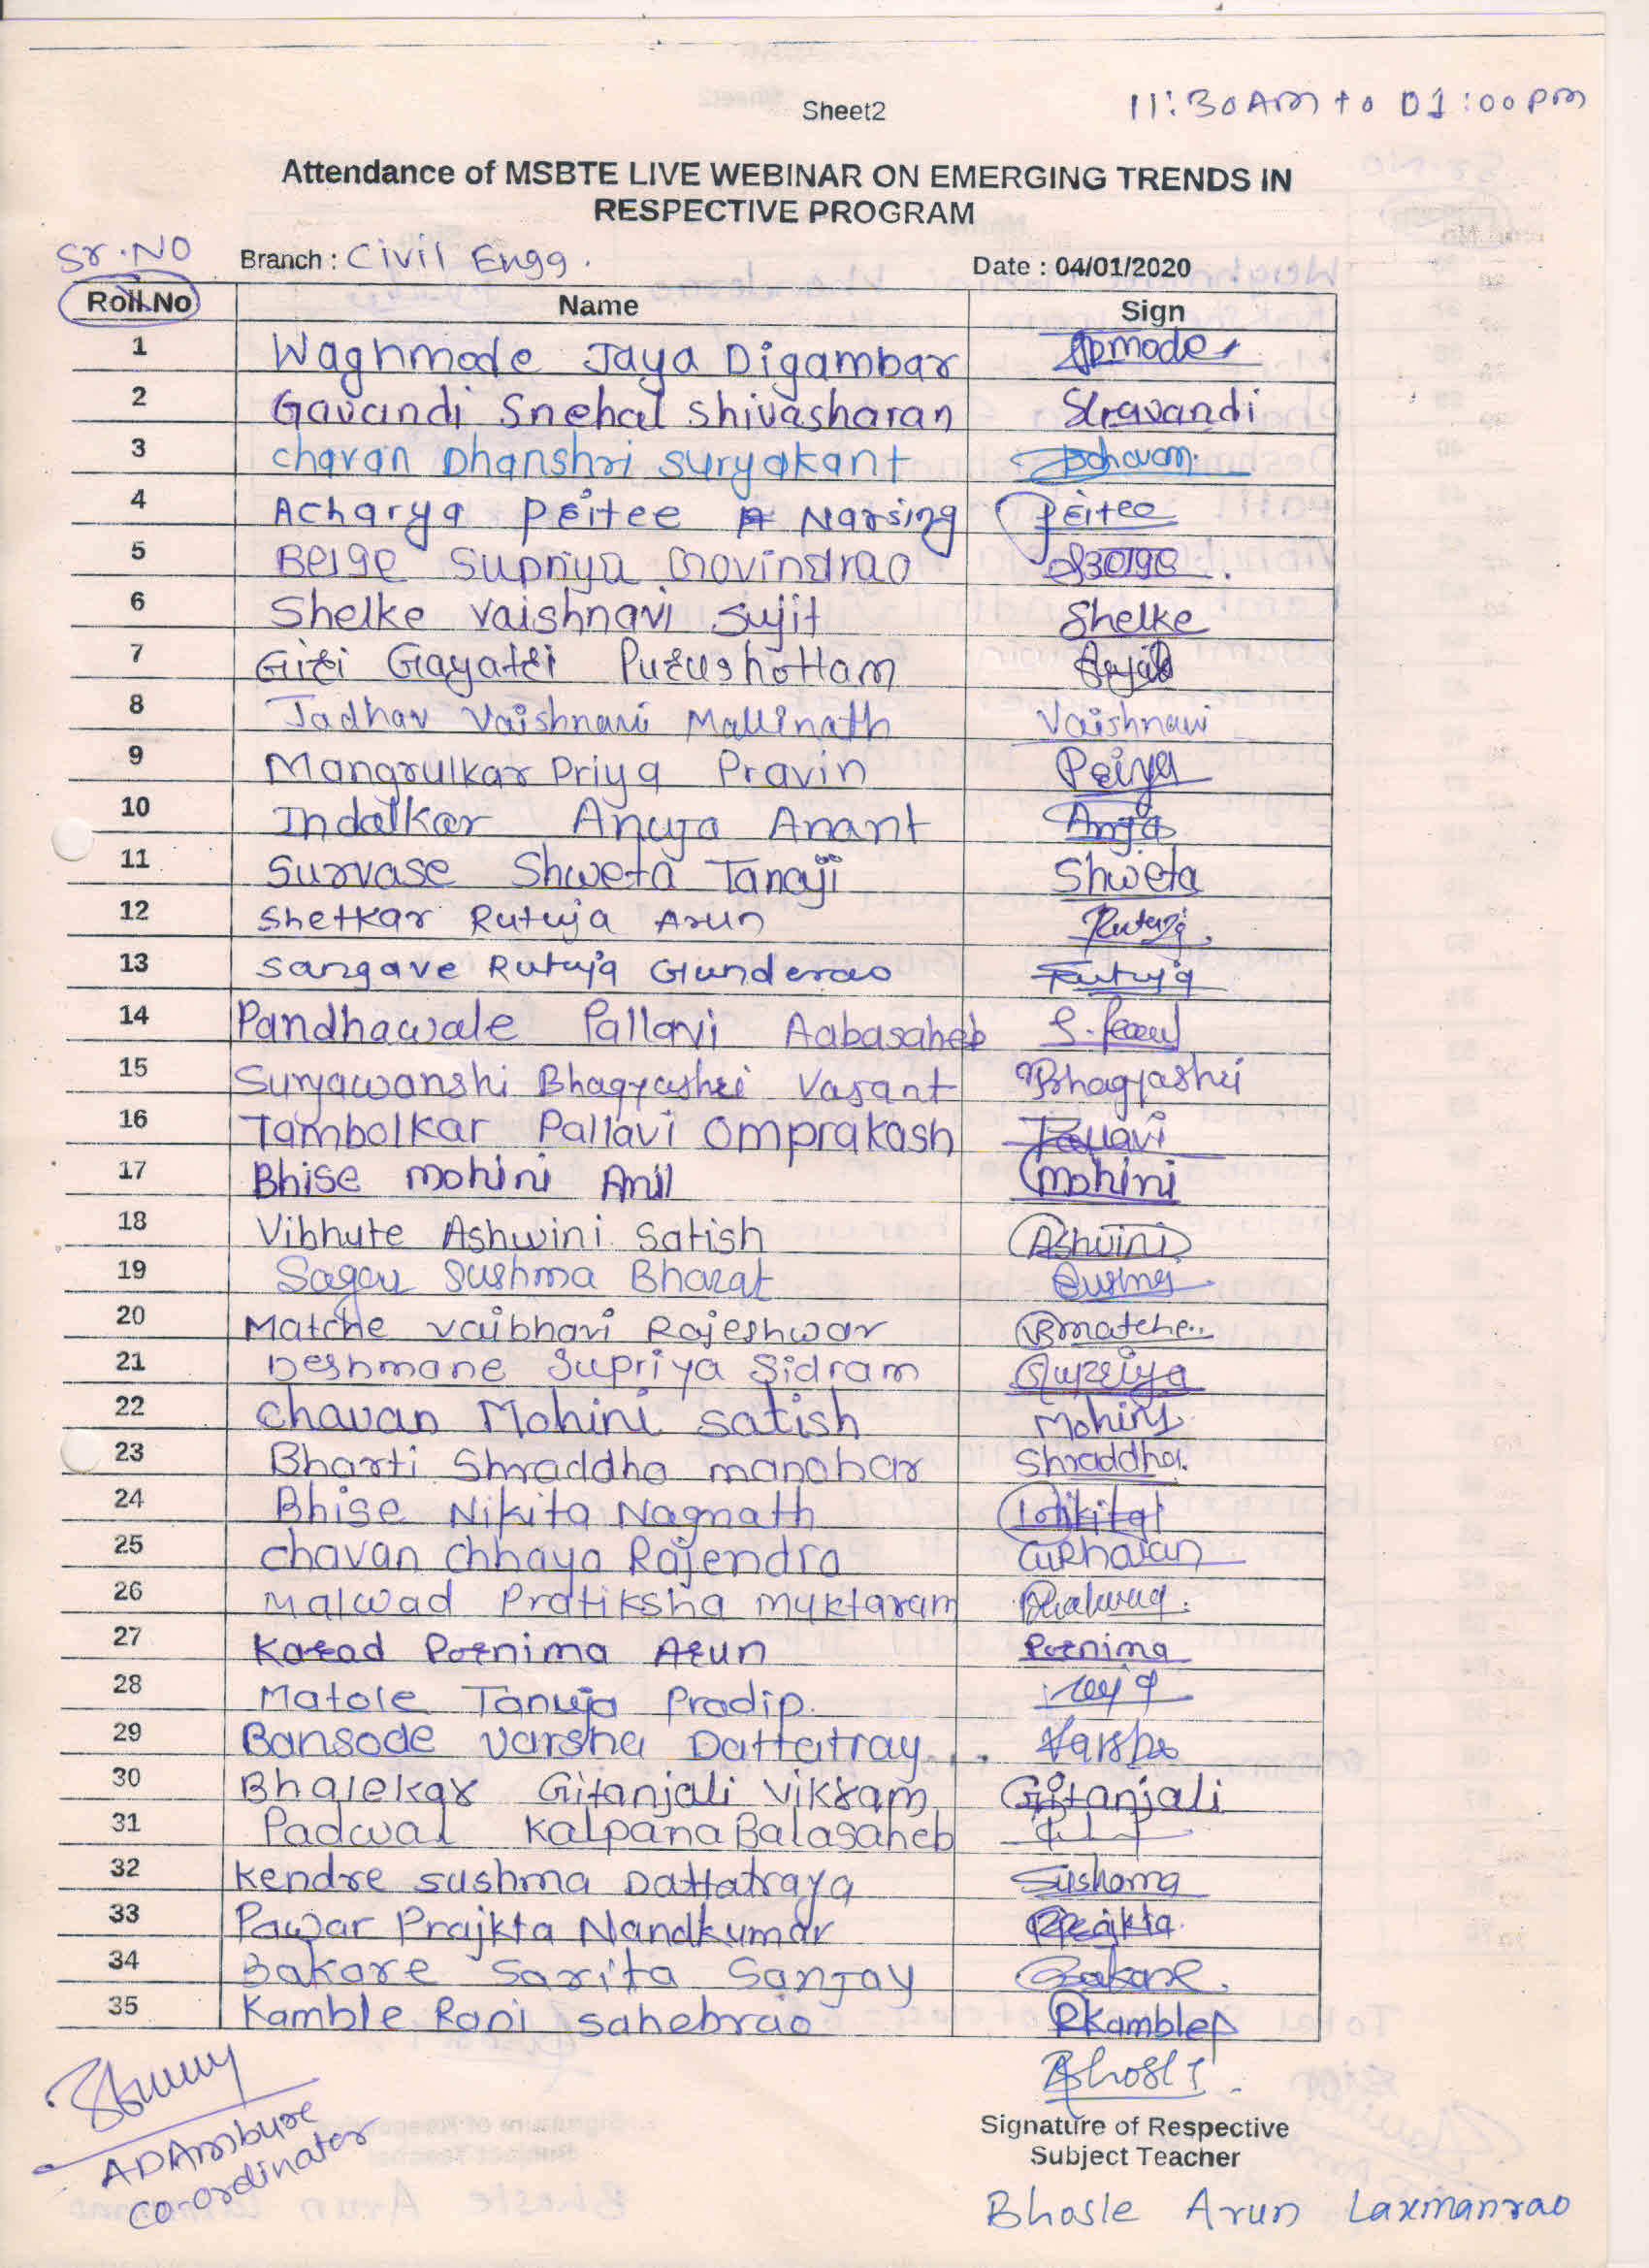 Sheet2
11:30AM to 01:00PM
Attendance of MSBTE LIVE WEBINAR ON EMERGING TRENDS IN
RESPECTIVE PROGRAM
Sr.NO
Branch : Civil Engg.
Date : 04/01/2020
Roll.No Name Sign
1 Waghmode Jaya Digambar
2 Gavandi Snehal Shivasharan
3 chavan Dhanshri suryakant
4 Acharya Preitee Narsing
5 Belge Supriya Govindrao
6 Shelke Vaishnavi Sujit Shelke
7 Giri Gayatri Purushottam
8 Jadhav Vaishnavi Mallinath Vaishnavi
9 Mangrulkar Priya Pravin Priya
10 Indalkar Anuja Anant
11 Survase Shweta Tanaji Shweta
12 Shetkar Rutuja Arun Rutuja
13 Sangave Rutuja Gunderao Rutuja
14 Pandhawale Pallavi Aabasaheb
15 Suryawanshi Bhagyashri Vasant Bhagyashri
16 Tambolkar Pallavi Omprakash Pallavi
17 Bhise mohini Anil mohini
18 Vibhute Ashwini Satish Ashwini
19 Sagar Sushma Bharat
20 Matche vaibhavi Rajeshwar
21 Deshmane Supriya Sidram Supriya
22 Chavan Mohini Satish Mohini
23 Bharti Shraddha manohar Shraddha.
24 Bhise Nikita Nagnath Nikita
25 Chavan Chhaya Rajendra
26 Malwad Pratiksha Muktaram
27 Karad Pornima Arun Pornima
28 Matole Tanuja Pradip.
29 Bansode Varsha Dattatray... Varsha
30 Bhalekar Gitanjali Vikram Gitanjali
31 Padwal Kalpana Balasaheb
32 Kendre sushma Dattatraya Sushama
33 Pawar Prajkta Nandkumar Prajkta
34 Bakare Sarita Sanjay Bakare.
35 Kamble Rani Sahebrao RKamble
ADAmbure
Co-ordinator
Signature of Respective
Subject Teacher
Bhosle Arun Laxmanrao